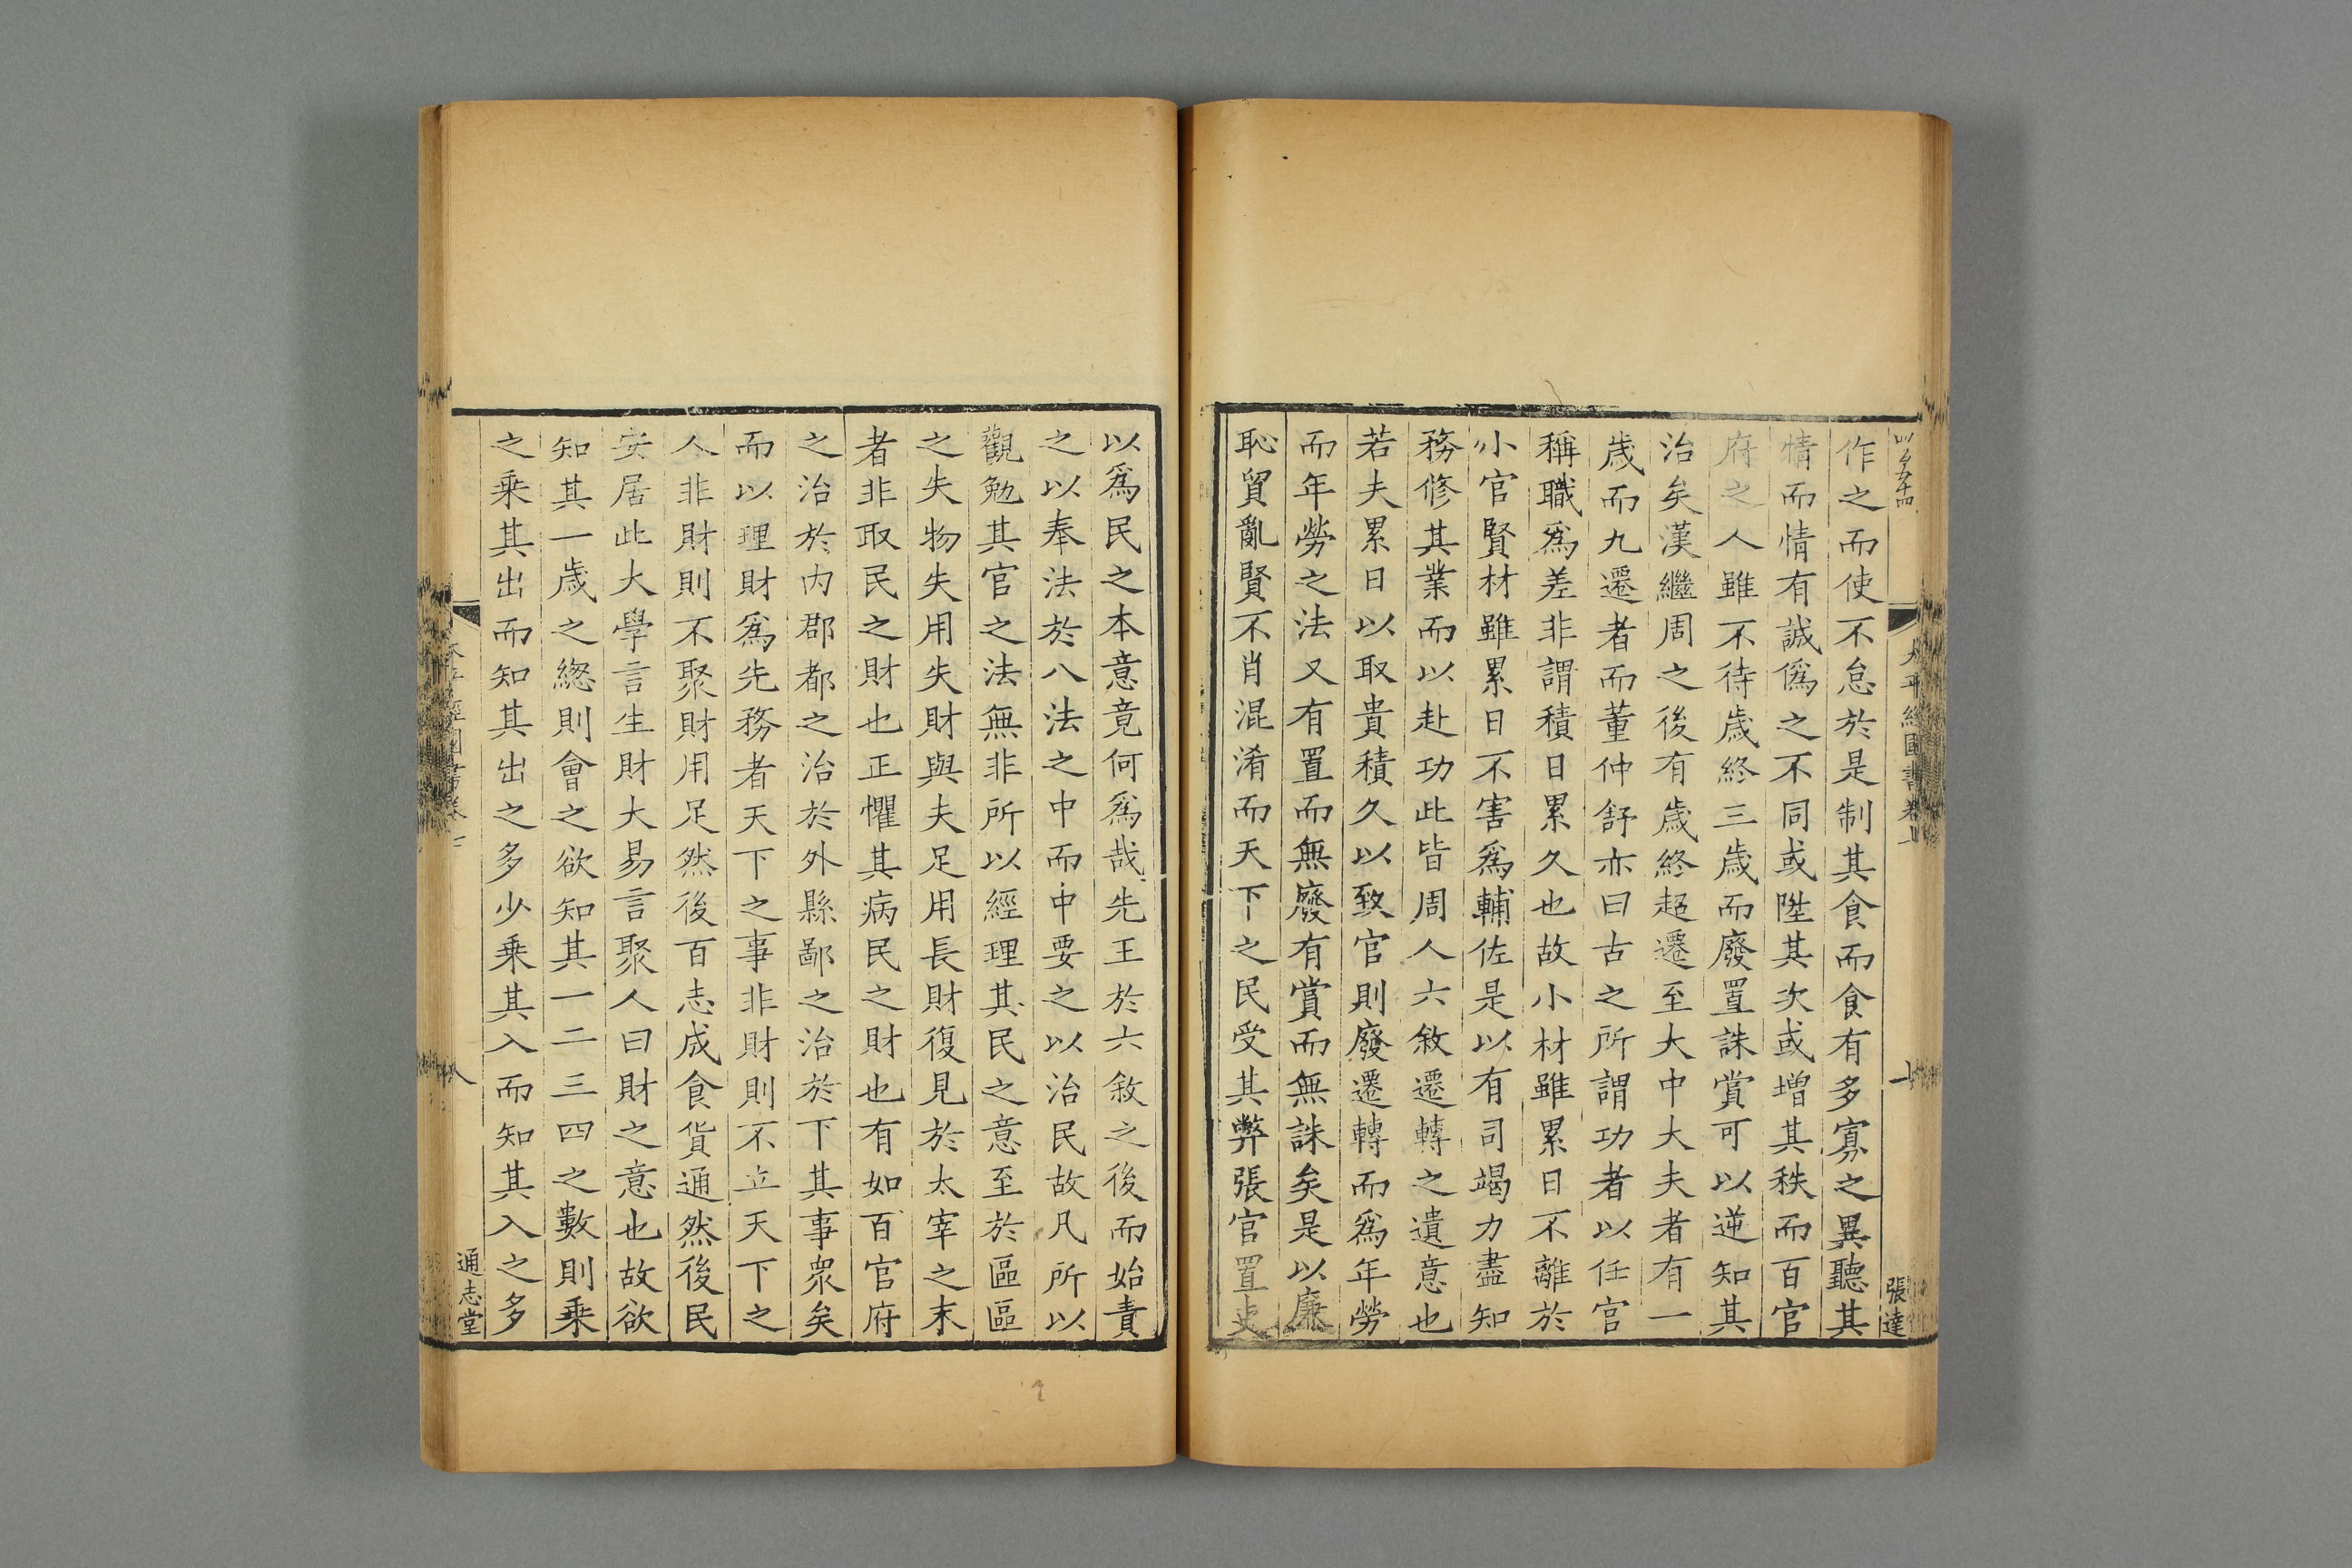 作之而使不怠於是制其食而食有多寡之異聽其
情而情有誠僞之不同或陞其次或增其秩而百官
府之人雖不待歲終三歲而廢置誅賞可以逆知其
治矣漢繼周之後有歲終超遷至大中大夫者有一
歲而九遷者而董仲舒亦曰古之所謂功者以任官
稱職爲差非謂積日累久也故小材雖累日不離於
小官賢材雖累日不害爲輔佐是以有司竭力盡知
務修其業而以赴功此皆周人六敘遷轉之遺意也
若夫累日以取貴積久以致官則廢遷轉而爲年勞
而年勞之法又有置而無廢有賞而無誅矣是以廉
恥貿亂賢不肖混淆而天下之民受其弊張官置吏
張達
以爲民之本意竟何爲哉先王於六敘之後而始責
之以奉法於八法之中而中要之以治民故凡所以
觀勉其官之法無非所以經理其民之意至於區區
之失物失用失財與夫足用長財復見於太宰之末
者非取民之財也正懼其病民之財也有如百官府
之治於内郡都之治於外縣鄙之治於下其事衆矣
而以理財爲先務者天下之事非財則不立天下之
人非財則不聚財用足然後百志成食貨通然後民
安居此大學言生財大易言聚人曰財之意也故欲
知其一歲之緫則會之欲知其一二三四之數則乗
之乗其出而知其出之多少乗其入而知其入之多
通志堂